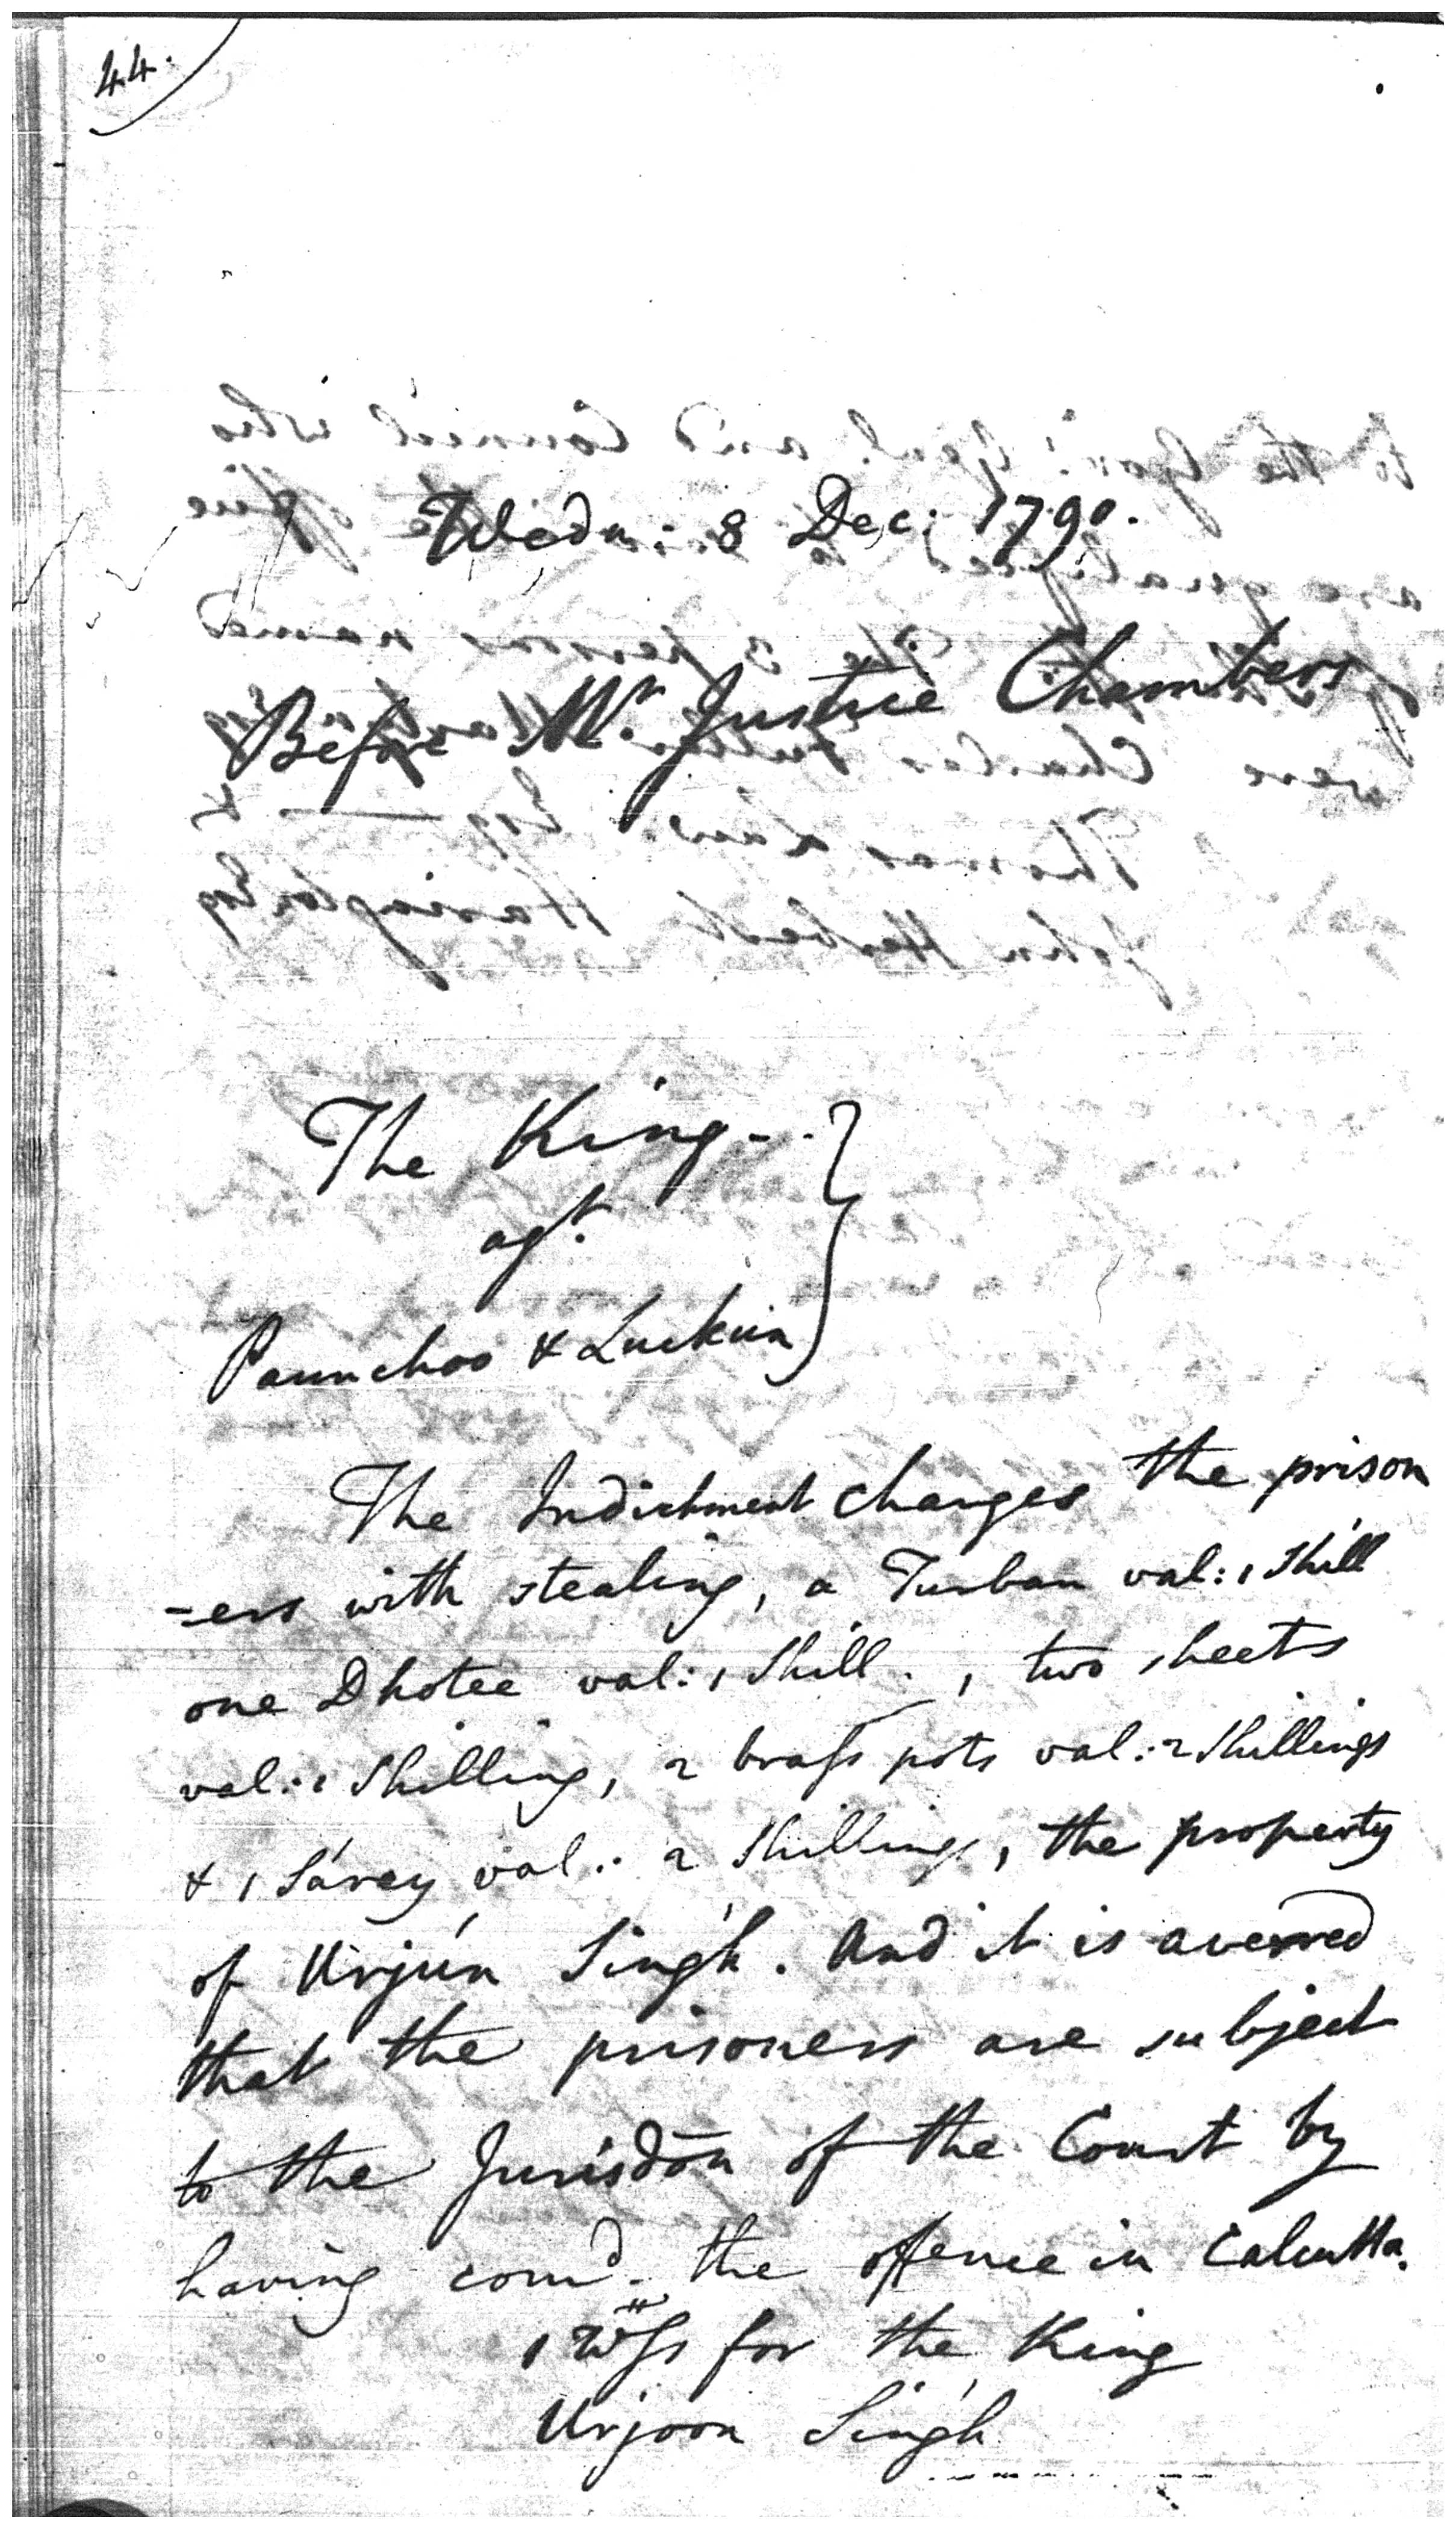 44.
Wedn: 8 Dec: 1790.
Before Mr. Justice Chambers
The King - - }
agt.
Paunchoo & Luckun
The Indictment charges the prison
-ers with stealing, a Turban val: 1 Shill
one Dhotee val: 1 Shill., two sheets
val: 1 Shilling, 2 brass pots val: 2 Shillings
& 1 Sárey val: 2 Shillings, the property
of Urjún Singh. And it is averred
that the prisoners are subject
to the Jurisdōn of the Court by
having comd. the offence in Calcutta.
1 Wss for the King
Urjoon Singh